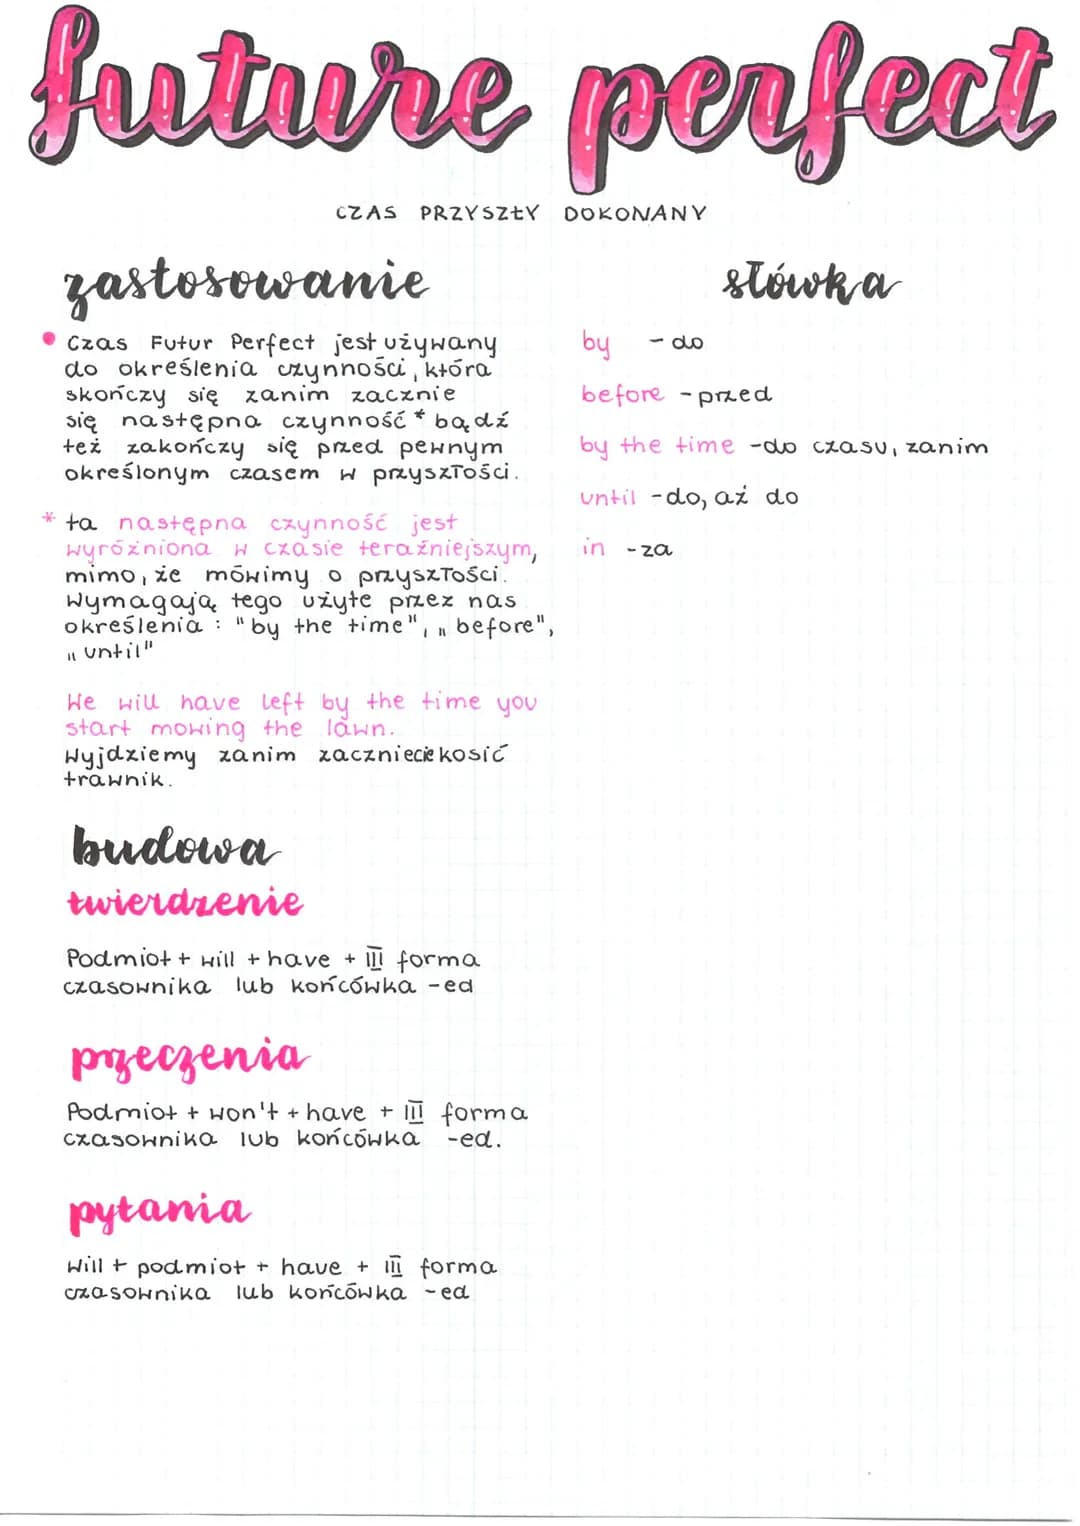 future perfect
CZAS PRZYSZŁY DOKONANY
zastosowanie
• Czas Futur Perfect jest używany
do określenia czynności, która
skończy się zanim zacznie
się następna czynność * bądź
też zakończy się przed pewnym
określonym czasem w przyszłości.
* ta następna czynność jest
wyróżniona w czasie teraźniejszym,
mimo, że mówimy o przyszłości.
Wymagają tego użyte przez nas
określenia : "by the time", „before",
„until"
We will have left by the time you
start mowing the lawn.
Wyjdziemy zanim zaczniecie kosić
trawnik.
budowa
twierdzenie
Podmiot + will + have + III forma
czasownika lub końcówka -ed
przeczenia
Podmiot + won't + have + III forma
czasownika lub końcówka -ed.
pytania
Will + podmiot + have + III forma
czasownika lub końcówka -ed
słówka
by - do
before - przed
by the time - do czasu, zanim
until - do, aż do
in - za